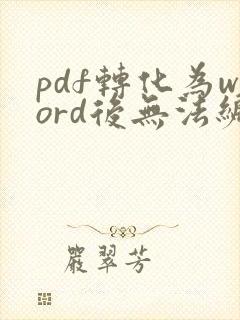 pdf轉化為w
ord後無法編
嚴翠芳